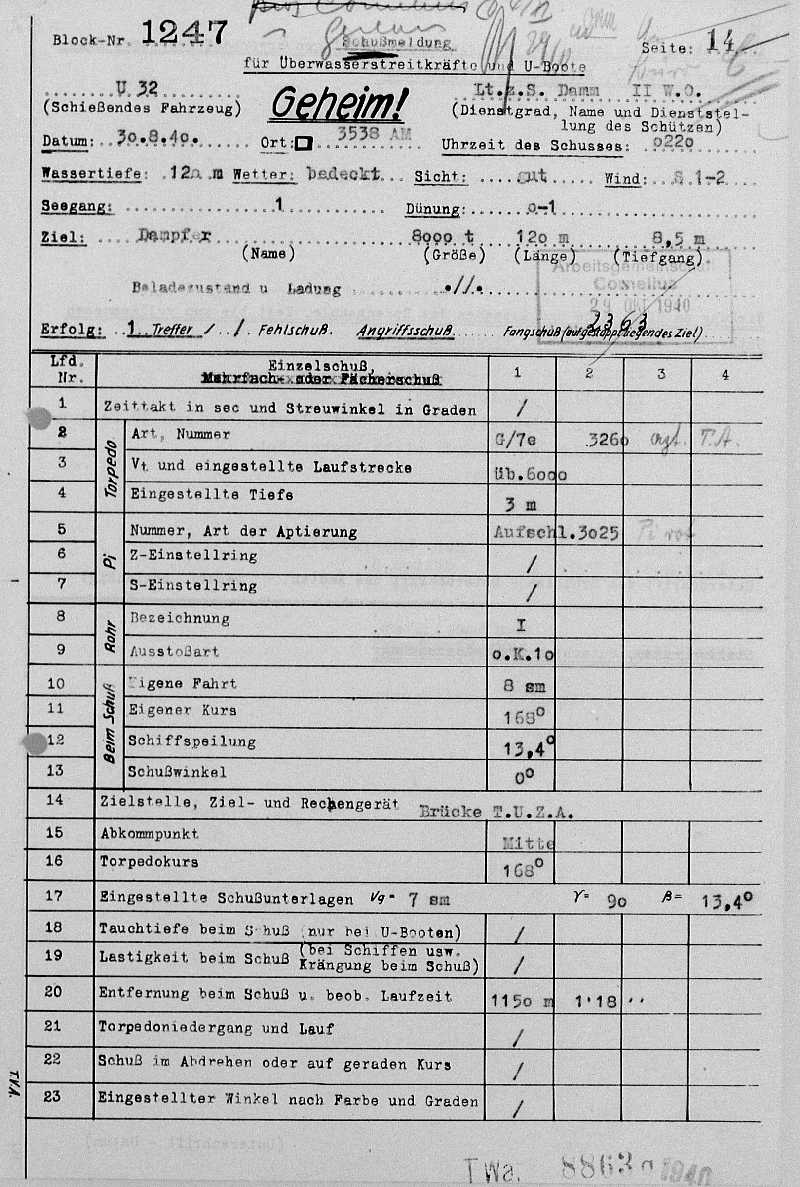 Block-Nr. 1247
Schußmeldung
Seite: 14
für Überwasserstreitkräfte und U-Boote
U 32
Lt.z.S. Damm II W.O.
(Schießendes Fahrzeug)
Geheim!
(Dienstgrad, Name und Dienststel-
lung des Schützen)
Datum: 3o.8.4o. Ort: 3538 AM
Uhrzeit des Schusses: o22o
Wassertiefe: 12o m Wetter: bedeckt Sicht: gut Wind: S 1-2
Seegang: 1 Dünung: o-1
Ziel: Dampfer 8ooo t 12o m 8,5 m
(Name) (Größe) (Länge) (Tiefgang)
Arbeitsgemeinschaft
Cornelius
Beladezustand u Ladung .//.
1940
3363
Erfolg: 1 Treffer / / Fehlschuß. Angriffsschuß Fangschuß (auf gestoppt liegendes Ziel)
Lfd. Nr. Einzelschuß, 1 2 3 4
Mehrfach- oder Fächerschuß
1 Zeittakt in sec und Streuwinkel in Graden /
Torpedo
2 Art, Nummer G/7e 326o T.A.
3 Vt und eingestellte Laufstrecke üb.6ooo
4 Eingestellte Tiefe 3 m
Pi
5 Nummer, Art der Aptierung Aufschl.3o25 Pi rot
6 Z-Einstellring /
7 S-Einstellring /
Rohr
8 Bezeichnung I
9 Ausstoßart o.K.1o
Beim Schuß
10 Eigene Fahrt 8 sm
11 Eigener Kurs 168°
12 Schiffspeilung 13,4°
13 Schußwinkel 0°
14 Zielstelle, Ziel- und Rechengerät Brücke T.U.Z.A.
15 Abkommpunkt Mitte
16 Torpedokurs 168°
17 Eingestellte Schußunterlagen Vg= 7 sm γ= 9o β= 13,4°
18 Tauchtiefe beim Schuß (nur bei U-Booten) /
19 Lastigkeit beim Schuß (bei Schiffen usw. Krängung beim Schuß) /
20 Entfernung beim Schuß u. beob. Laufzeit 115o m 1'18''
21 Torpedoniedergang und Lauf /
22 Schuß im Abdrehen oder auf geraden Kurs /
23 Eingestellter Winkel nach Farbe und Graden /
TVA.
TWa. 8863 1940